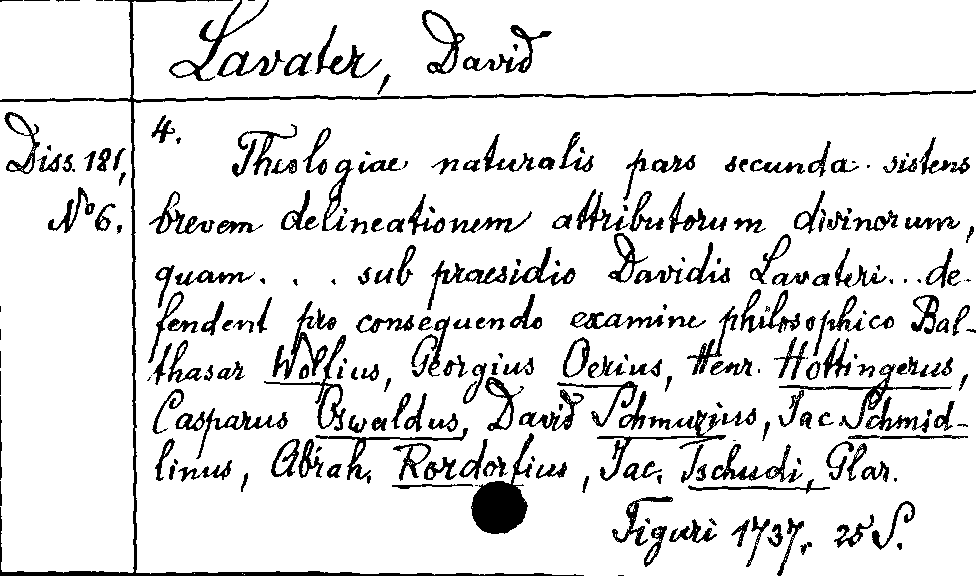 Lavater, David
Diss. 181,
No 6.
4.
Theologiae naturalis pars secunda sistens
brevem delineationem attributorum divinorum,
quam . . . sub praesidio Davidis Lavateri... de-
fendent pro consequendo examine philosophico Bal-
thasar Wolfius, Georgius Oerius, Henr. Hottingerus,
Casparus Oswaldus, David Schmuzius, Jac Schmid-
linus, Abrah. Rordorfius, Jac. Tschudi, Glar.
Tiguri 1737. 25 S.